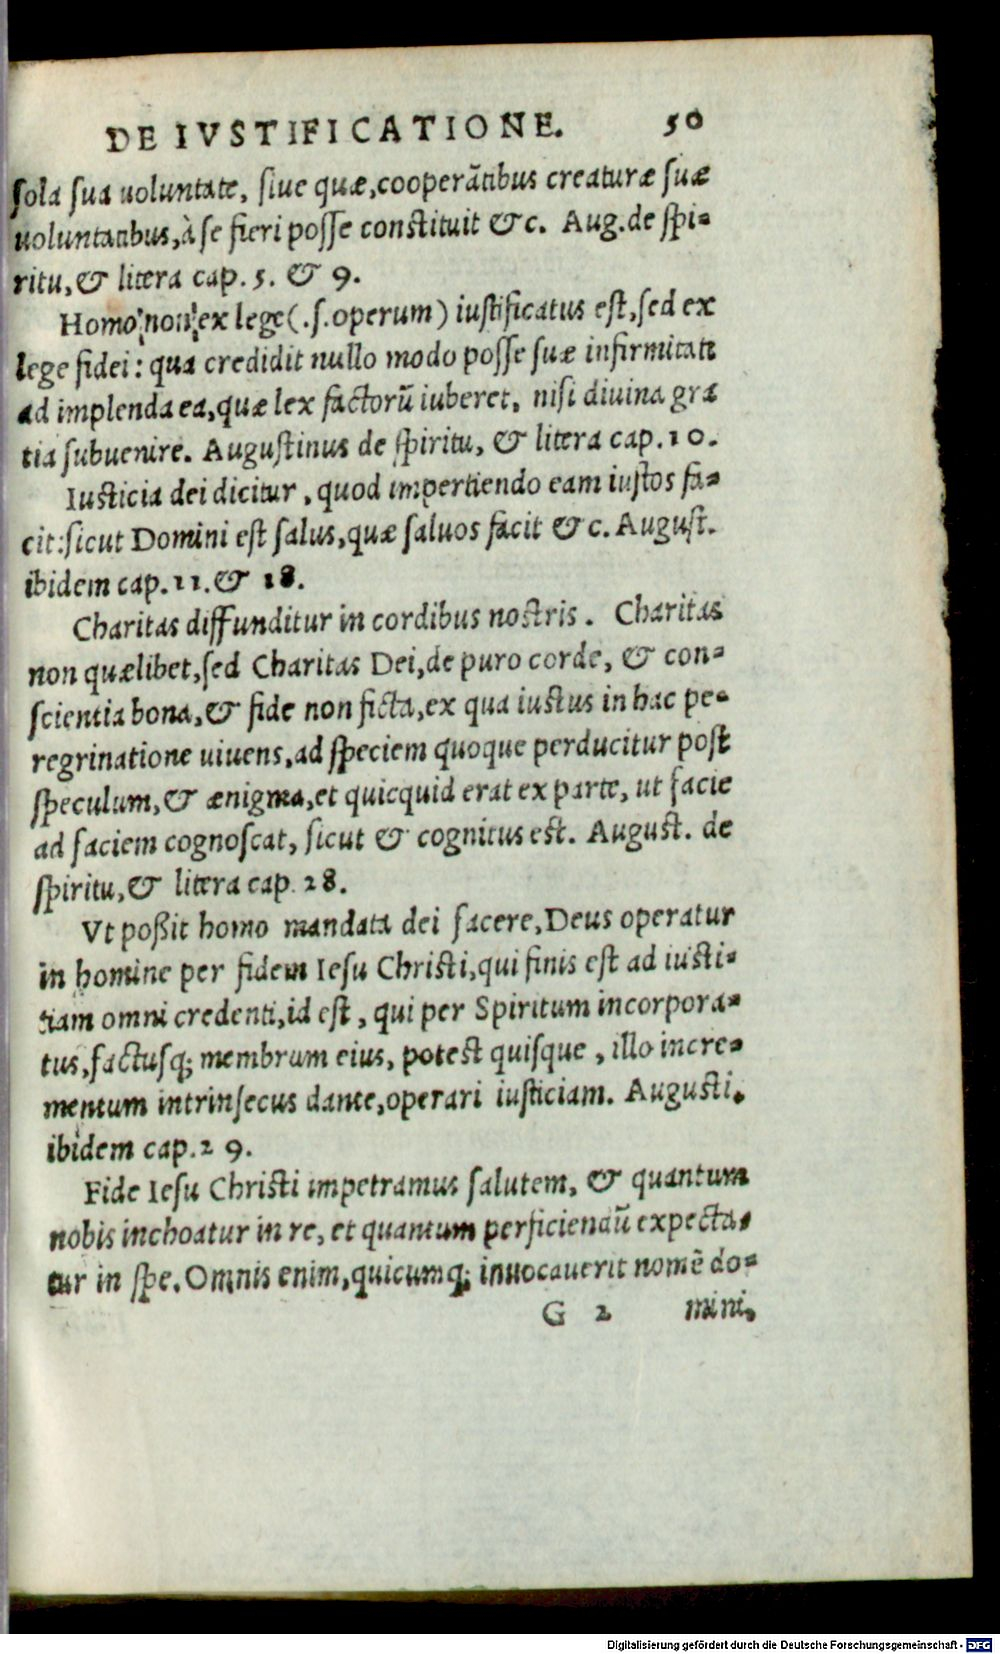 DE IVSTIFICATIONE. 50
sola sua uoluntate, siue quæ, cooperãtibus creaturæ suæ
uoluntatibus, à se fieri posse constituit &c. Aug. de spi-
ritu, & litera cap. 5. & 9.
Homo non ex lege (.s. operum) iustificatus est, sed ex
lege fidei: qua credidit nullo modo posse suæ infirmitati
ad implenda ea, quæ lex factorũ iuberet, nisi diuina gra
tia subuenire. Augustinus de spiritu, & litera cap. 10.
Iusticia dei dicitur, quod impertiendo eam iustos fa-
cit: sicut Domini est salus, quæ saluos facit &c. August.
ibidem cap. 11. & 18.
Charitas diffunditur in cordibus nostris. Charitas
non quælibet, sed Charitas Dei, de puro corde, & con-
scientia bona, & fide non ficta, ex qua iustus in hac pe-
regrinatione uiuens, ad speciem quoque perducitur post
speculum, & ænigma, et quicquid erat ex parte, ut facie
ad faciem cognoscat, sicut & cognitus est. August. de
spiritu, & litera cap. 28.
Vt poßit homo mandata dei facere, Deus operatur
in homine per fidem Iesu Christi, qui finis est ad iusti-
tiam omni credenti, id est, qui per Spiritum incorpora-
tus, factusq; membrum eius, potest quisque, illo incre-
mentum intrinsecus dante, operari iusticiam. Augusti.
ibidem cap. 29.
Fide Iesu Christi impetramus salutem, & quantum
nobis inchoatur in re, et quantum perficiendũ expecta-
tur in spe. Omnis enim, quicumq; inuocauerit nomẽ do-
G 2 mini,
Digitalisierung gefördert durch die Deutsche Forschungsgemeinschaft - DFG